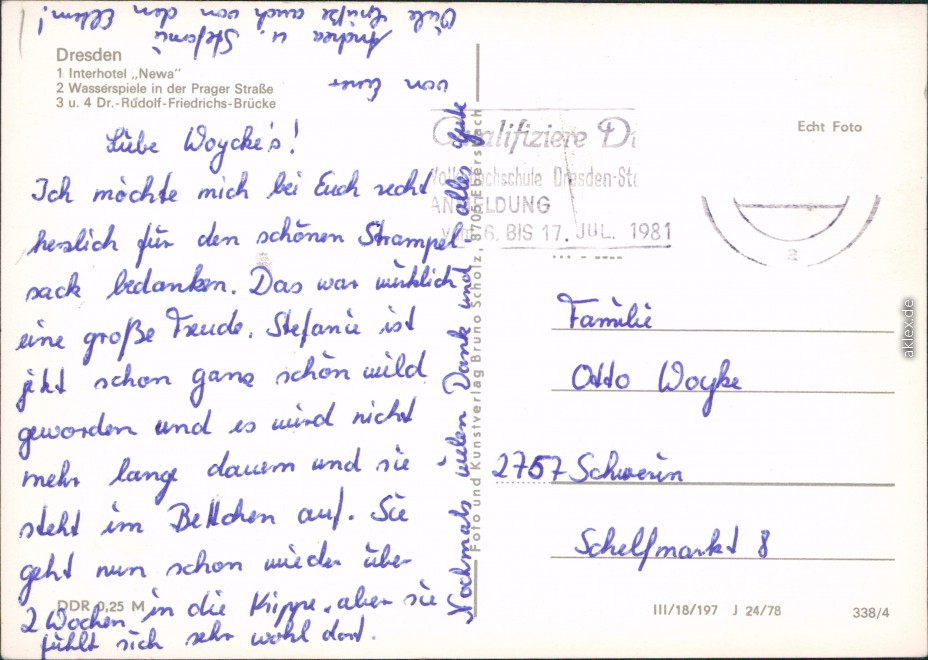 Dresden
1 Interhotel „Newa"
2 Wasserspiele in der Prager Straße
3 u. 4 Dr.-Rudolf-Friedrichs-Brücke
Liebe Woycke's!
Ich möchte mich bei Euch recht
herzlich für den schönen Strampel-
sack bedanken. Das war wirklich
eine große Freude. Stefanie ist
jetzt schon ganz schön wild
geworden und es wird nicht
mehr lange dauern und sie
steht im Bettchen auf. Sie
geht nun schon wieder über
2 Wochen in die Krippe, aber sie
fühlt sich sehr wohl dort.
DDR 0,25 M
Nochmals vielen Dank und alles Gute
von Eurer
Andrea u. Stefanie
Viele Grüße auch von den Eltern!
Foto und Kunstverlag Bruno Scholz, 8705 Ebersbach
Qualifiziere Di
Volkshochschule Dresden-Sta
ANMELDUNG
VOM 6. BIS 17. JUL. 1981
a
Echt Foto
Familie
Otto Woyke
2757 Schwerin
Schelfmarkt 8
III/18/197 J 24/78
338/4
aklex.de